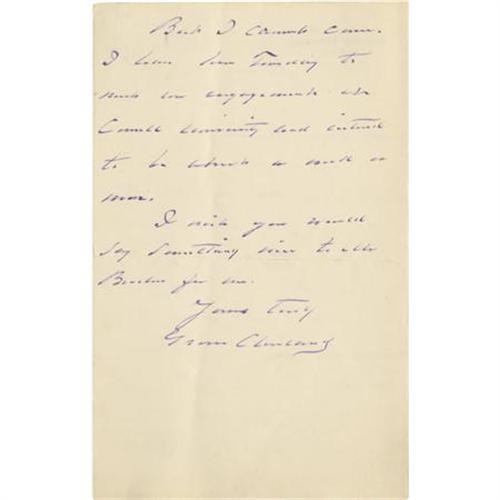 But I cannot come.
I leave here Tuesday to
meet an engagement at
Cornell University and intend
to be absent a week or
more.
I wish you would
say something nice to the
for me.
Yours truly
Grover Cleveland